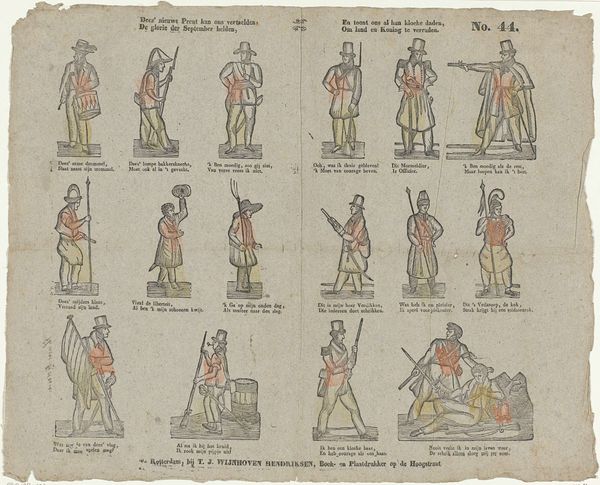 Deez' nieuwe Prent kan ons vertellen,
De glorie der September helden,
En toont ons al hun kloeke daden,
Om land en Koning te verraden.
No. 44.
Deez' arme drommel,
Slaat naast zijn trommel.
Deez' lompe bakkersknecht,
Moet ook al in 't gevecht.
'k Ben moedig, zoo gij ziet,
Van vorst vrees ik niet.
Och, was ik thuis gebleven!
'k Moet van courage beven.
Die Moesseldier,
Is Officier.
'k Ben moedig als de rest,
Maar loopen kan ik 't best.
Deez' snijders klant,
Verraad zijn land.
Vivat de liberteit,
Al ben 'k mijn schoenen kwijt.
'k Ga op mijn ouden dag,
Als muiter naar den slag.
Dit is mijn heer Verslikken,
Die iedereen doet schrikken.
Wat heb ik an plezier,
Ik speel voor
Dit 's Vedastep, de kok,
Strak krijgt hij een
Wat zeg je van deez' vlag,
Daar ik mee
Al sta ik bij het kruid,
Ik rook mijn pijpje uit
Ik ben een kloeke haas,
En heb courage als een baas.
Nooit voelde ik in mijn leven vuur,
De schrik alleen sloeg mij ter neer.
Te Rotterdam, bij T. J. WIJNHOVEN HENDRIKSEN, Boek- en Plaatdrukker op de Hoogstraat